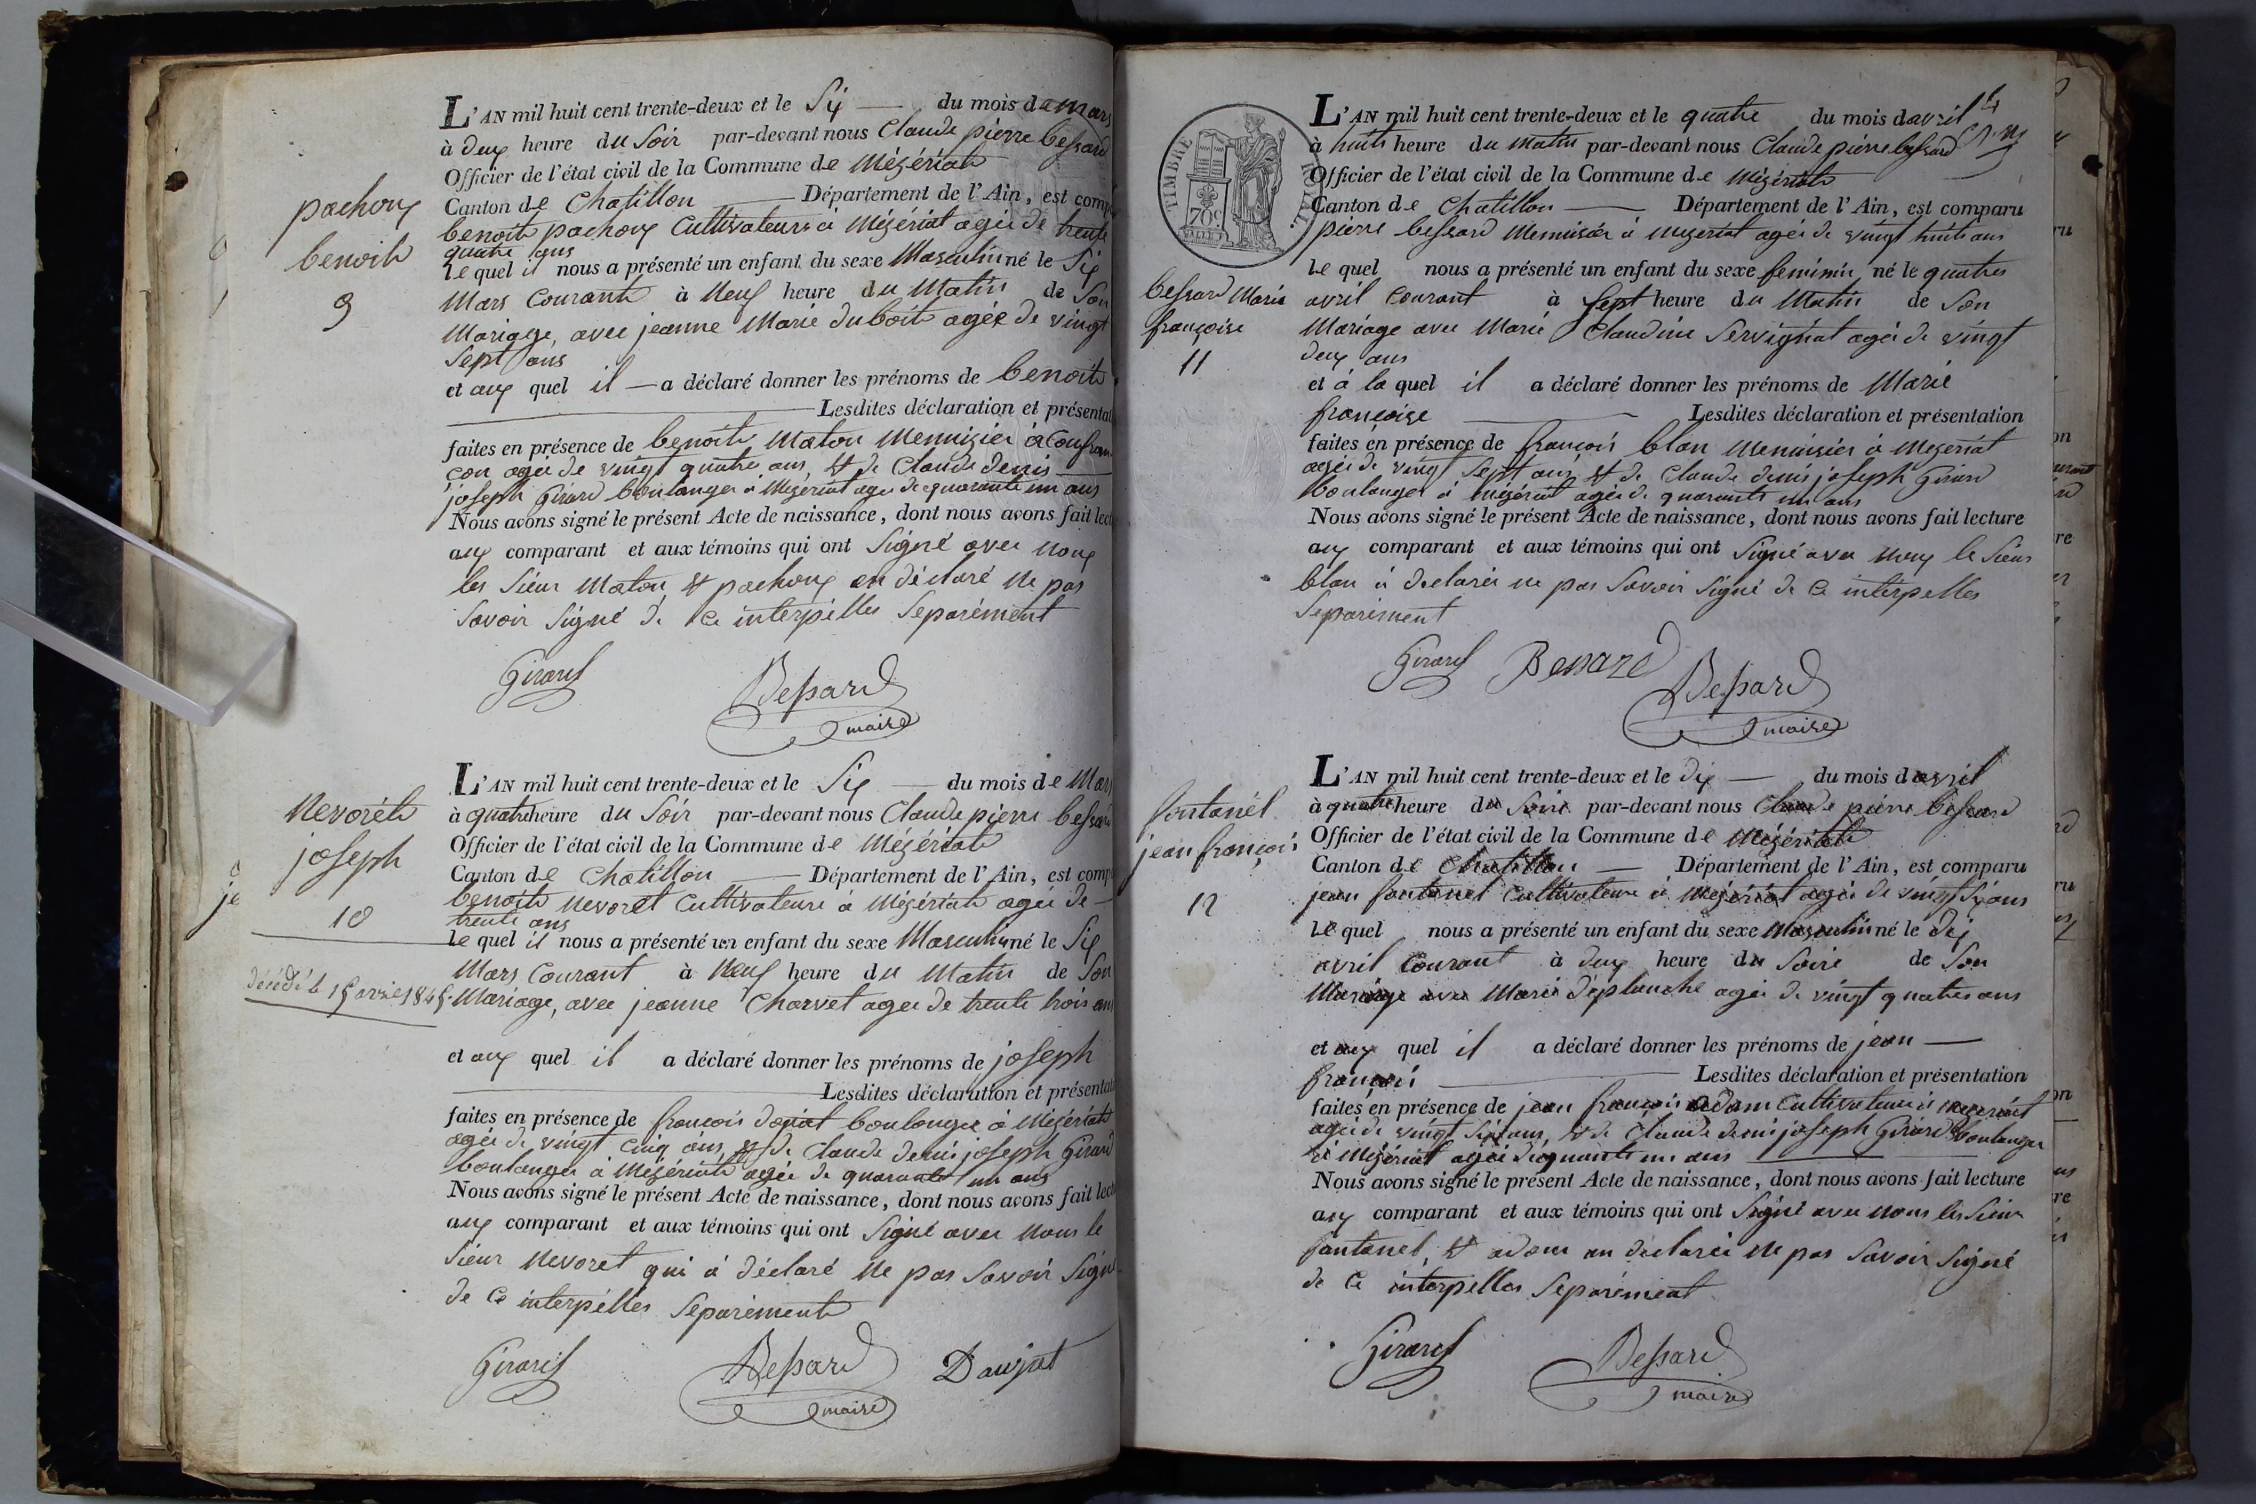 pachoux
benoit
9
L'AN mil huit cent trente-deux et le Six du mois de mars
à deux heure du Soir par-devant nous Claude pierre bessard
Officier de l'état civil de la Commune de Mézériat
Canton de Chatillon Département de l'Ain, est comp
benoit pachoux Cultivateure à Mézériat agée de trente
quatre ans
le quel il nous a présenté un enfant du sexe Masculin né le Six
Mars Courant à Neuf heure du Matin de Son
Mariage, avec jeanne Marie duboit agée de vingt
Sept ans
et aux quel il a déclaré donner les prénoms de benoit
Lesdites déclaration et présentat
faites en présence de benoit Maton Mennizier à Confran
çon agée de vingt quatre ans, et de Claude denis
joseph Girard boulanger à Mézériat agée de quarante un ans
Nous avons signé le présent Acte de naissance, dont nous avons fait lect
aux comparant et aux témoins qui ont Signé avec nous
les Sieur Maton et pachoux on déclaré ne pas
Savoir Signé de Ce interpélles Séparément
Girard Bessard
maire
Nevorét
joseph
10
décédé le 15 avril 1845.
L'AN mil huit cent trente-deux et le Six du mois de Mars
à quatre heure du Soir par-devant nous Claude pierre bessard
Officier de l'état civil de la Commune de Mézériat
Canton de Chatillon Département de l'Ain, est comp
benoit Nevoret Cultivateure à Mézériat agée de
trente ans
le quel il nous a présenté un enfant du sexe Masculin né le Six
Mars Courant à Neuf heure du Matin de Son
Mariage, avec jeanne Charvet agée de trente trois ans
et aux quel il a déclaré donner les prénoms de joseph
Lesdites déclaration et présentat
faites en présence de francois boulanger à Mézériat
agée de vingt Cinq ans, et de Claude denis joseph Girard
boulanger à Mézériat agée de quarante un ans
Nous avons signé le présent Acte de naissance, dont nous avons fait lect
aux comparant et aux témoins qui ont Signé avec nous le
Sieur Nevoret qui à déclaré ne pas Savoir Signé
de Ce interpélles Séparément
Girard Bessard Daujat
maire
TIMBRE ROYAL
70c
14
bessard Marie
françoise
11
L'AN mil huit cent trente-deux et le quatre du mois davril
à huit heure du Matin par-devant nous Claude pierre bessard
Officier de l'état civil de la Commune de Mézériat
Canton de Chatillon Département de l'Ain, est comparu
pierre bessard Menuisier à Mezeriat agée de vingt huit ans
le quel nous a présenté un enfant du sexe feminin, né le quatres
avril Courant à Sept heure du Matin de Son
Mariage avec Marie Claudine Servignat agée de vingt
deux ans
et à la quel il a déclaré donner les prénoms de Marie
françoise Lesdites déclaration et présentation
faites en présence de françois blan Menuisier à Mezeriat
agée de vingt Sept ans, et de Claude denis joseph Girard
boulanger à Mézériat agée de quarante un ans
Nous avons signé le présent Acte de naissance, dont nous avons fait lecture
aux comparant et aux témoins qui ont Signé avec nous le Sieur
blan à declarée ne pas Savoir Signé de Ce interpelles
Séparément
Girard Bessard Bessard
maire
fontanel
jean françois
12
L'AN mil huit cent trente-deux et le dix du mois davril
à quatre heure du Soire par-devant nous Claude pierre bessard
Officier de l'état civil de la Commune de Mézériat
Canton de Chatillon Département de l'Ain, est comparu
jean fontanel Cultivateure à Mézériat agée de vingt Six ans
le quel nous a présenté un enfant du sexe Masculin né le dix
avril Courant à deux heure du Soire de Son
Mariage avec Marie déplanche agée de vingt quatres ans
et aux quel il a déclaré donner les prénoms de jean
françois Lesdites déclaration et présentation
faites en présence de jean françois adam Cultivateure à Mezeriat
agée de vingt ans, et de Claude denis joseph Girard boulanger
à Mézériat agée de quarante un ans
Nous avons signé le présent Acte de naissance, dont nous avons fait lecture
aux comparant et aux témoins qui ont Signé avec nous les Sieur
fontanel, et adam on declarée ne pas Savoir Signé
de Ce interpelles Séparément
Girard Bessard
maire